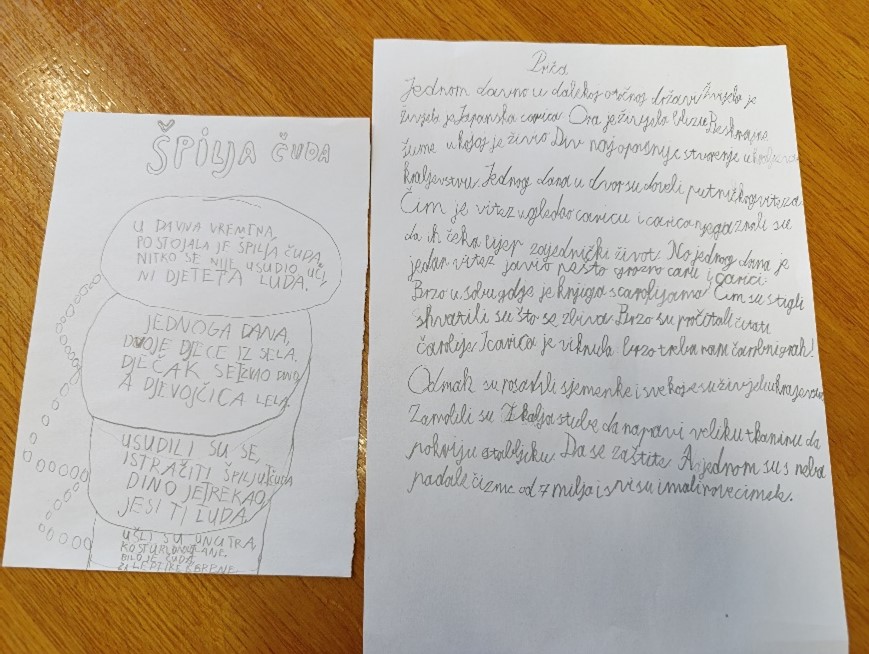 ŠPILJA ČUDA
U DAVNA VREMENA,
POSTOJALA JE ŠPILJA ČUDA,
NITKO SE NIJE USUDIO UĆI,
NI DJETETA LUDA.
JEDNOGA DANA,
DVOJE DJECE IZ SELA.
DJEČAK SE ZVAO DINO
A DJEVOJČICA LELA.
USUDILI SU SE,
ISTRAŽITI ŠPILJU ČUDA
DINO JE REKAO,
JESI TI LUDA,
UŠLI SU UNUTRA,
BILO JE ČUDA
Priča
Jednom davno u dalekoj otočnoj državi živjela je
živjela je Japanska carica. Ona je živjela blizu Beskrajne
šume u kojoj je živio Div najopasnije stvorenje u kraljevstvu
kraljevstvu. Jednog dana u dvor su doveli putničkog viteza
Čim je vitez ugledao caricu i carica njega znali su
da ih čeka lijep zajednički život. No jednog dana je
jedan vitez javio nešto grozno caru i carici.
Brzo u sobu gdje je knjiga s čarolijama Čim su stigli
shvatili su što se zbiva. Brzo su pročitali
čarolije. I carica je viknula brzo treba nam čarobni grah!
Odmah su posadili sjemenke i sve koje su živjele u kraljevstvu
Zamolili su da napravi veliku tkaninu da
pokriju stabljiku. Da se zaštite. A jednom su s neba
padale čizme od 7 milja i svi su imali nove cimek.